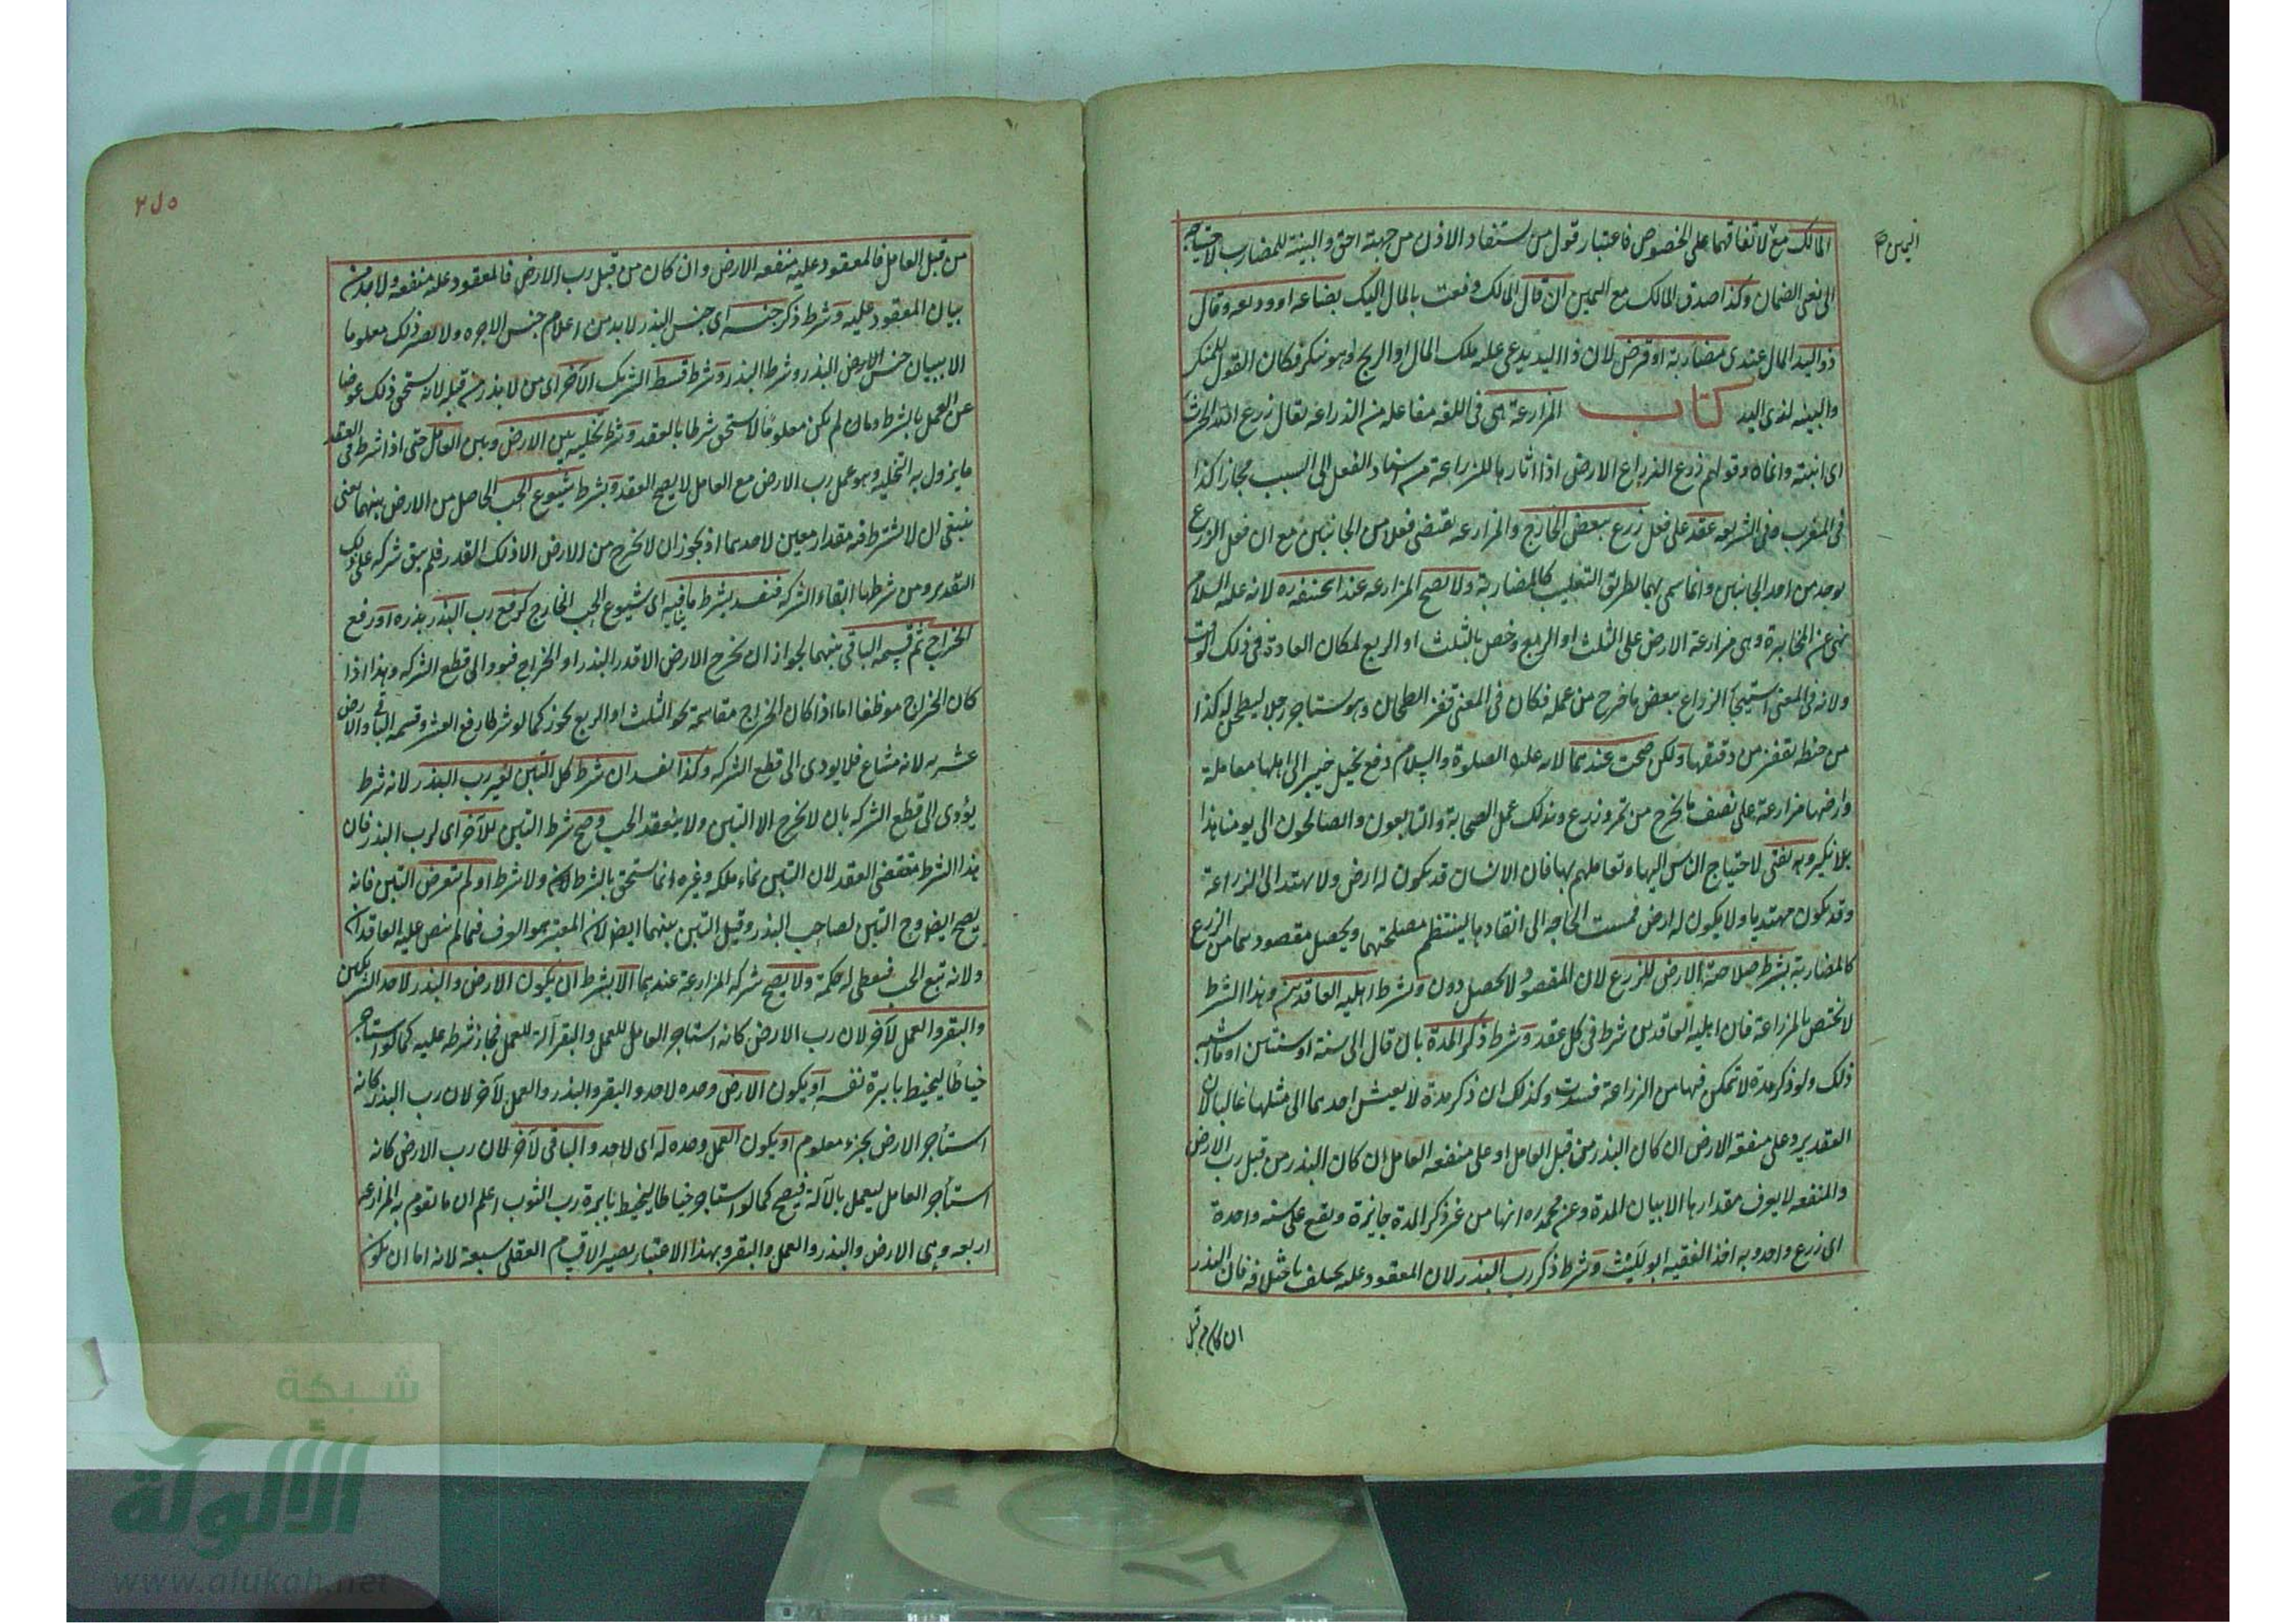 اليمين صح
المالك مع لاتفاقهما على الخصوص فاعتبار قول من يستفاد الاذن من جهته احق والبينة للمضارب لاحتياجه
الى نفى الضمان وكذا صدق المالك مع اليمين ان قال المالك دفعت بالمال اليك بضاعه او وديعه وقال
ذو اليد المال عندى مضاربة او قرض لان ذا اليد يدعى عليه ملك المال او الربح وهو منكر فكان القول للمنكر
والبينه لذى اليد كتاب المزارعة هى فى اللغه مفاعله من الزراعه يقال زرع الله الحرث
اى انبته وانماه وقولهم زرع الزراع الارض اذا اثارها للزراعة من اسناد الفعل الى السبب مجازا كذا
فى المغرب وفى الشريعه عقد على فعل زرع ببعض الخارج والمزارعه تقتضى فعلا من الجانبين مع ان فعل الزرع
يوجد من احد الجانبين وانما سمى بها بطريق التغليب كالمضاربة ولا تصح المزارعه عند ابى حنيفه ره لانه عليه السلام
نهى عن المخابرة وهى مزارعة الارض على الثلث او الربع وخص بالثلث او الربع لمكان العادة فى ذلك الوقت
ولانه فى المعنى استيجار الزراع ببعض ما خرج من عمله فكان فى المعنى قفيز الطحان وهو استاجر رجلا ليطحن له كذا
من حنطه بقفيز من دقيقها ولكن صحت عندهما لانه عليه الصلوة والسلام دفع نخيل خيبر الى اهلها معاملة
وارضها مزارعة على نصف ما يخرج من تمر وزرع وبذلك عمل الصحابة والتابعون والصالحون الى يومنا هذا
بلا نكير وبه يفتى لاحتياج الناس اليها وتعاملهم بها فان الانسان قد يكون له ارض ولا يهتدى الى الزراعة
وقد يكون مهتديا ولا يكون له ارض فمست الحاجه الى انعقادها لينتظم مصلحتهما ويحصل مقصودهما من الزرع
كالمضاربة بشرط صلاحية الارض للزرع لان المقصود لا يحصل دونه وشرط اهليه العاقدين وهذا الشرط
لا يختص بالمزراعة فان اهليه العاقدين شرط فى كل عقد وشرط ذكر المدة بان قال الى سنة او سنتين او ما اشبه
ذلك ولو ذكر مدة لا تمكن فيها من الزراعة فسدت وكذلك ان ذكر مدة لا يعيش احدهما الى مثلها غالبا لان
العقد يرد على منفعة الارض ان كان البذر من قبل العامل او على منفعه العامل ان كان البذر من قبل رب الارض
والمنفعه لا يعرف مقدارها الا ببيان المدة وعن محمد ره انها من غير ذكر المدة جايزة ويقع على سنه واحدة
اى زرع واحد وبه اخذ الفقيه ابو الليث وشرط ذكر رب البذر لان المعقود عليه يختلف باختلافه فان البذر
ان كان من قبل
٢٨٥
من قبل العامل فالمعقود عليه منفعه الارض وان كان من قبل رب الارض فالمعقود عليه منفعه ولا بد من
بيان المعقود عليه وشرط ذكر جنسه اى جنس البذر لا بد من اعلام جنس الاجره ولا يصير ذلك معلوما
الا ببيان جنس الارض البذر وشرط البذر وشرط قسط الشريك الآخر اى من لا بذر من قبله لانه يستحق ذلك عوضا
عن العمل بالشرط وما لم يكن معلوما لا يستحق شرطا بالعقد وشرط تخليه بين الارض وبين العامل حتى اذا شرط فى العقد
ما يزول به التخليه وهو عمل رب الارض مع العامل لا يصح العقد وبشرط شيوع الحب الحاصل من الارض بينهما يعنى
ينبغى ان لا يشترط فيه مقدار معين لاحدهما اذ يجوز ان لا يخرج من الارض الا ذلك القدر فلم يبق شركه على ذلك
التقدير ومن شرطها ابقاء الشركه فتفسد بشرط ما ينافيه اى شيوع الحب الخارج كرفع رب البذر بذره او رفع
الخراج ثم قسمه الباقى بينهما لجواز ان يخرج الارض الا قدر البذر او الخراج فيودى الى قطع الشركه وهذا اذا
كان الخراج موظفا اما اذا كان الخراج مقاسمة نحو الثلث او الربع يجوز كما لو شرطا رفع العشر وقسمه الباقى والارض
عشريه لانه مشاع فلا يودى الى قطع الشركه وكذا تفسد ان شرط كل التبن لغير رب البذر لانه شرط
يؤدى الى قطع الشركه بان لا يخرج الا التبن ولا ينعقد الحب وصح شرط التبن للآخر اى لرب البذر فان
هذا الشرط مقتضى العقد لان التبن نماء ملكه وغيره انما يستحق بالشرط ولا شرط او لم يتعرض التبن فانه
يصح ايضا وح التبن لصاحب البذر وقيل التبن بينهما ايضا لان المعتبر هو العرف فيما لم ينص عليه العاقدان
ولانه تبع الحب فيعطى له حكمه ولا يصح شركه المزارعة عندهما الا بشرط ان يكون الارض والبذر لاحد الشريكين
والبقر والعمل لآخر لان رب الارض كانه استاجر العامل للعمل والبقر آلة للعمل فجاز شرطه عليه كما لو استاجر
خياطا ليخيط بابرة نفسه او يكون الارض وحده لاحد والبقر والبذر والعمل لآخر لان رب البذر كانه
استأجر الارض بجزء معلوم او يكون العمل وحده له اى لاحد والباقى لآخر لان رب الارض كانه
استأجر العامل ليعمل بالآلة فيصح كما لو استاجر خياطا ليخيط بابرة رب الثوب اعلم ان ما تقوم به المزارعه
اربعه وهى الارض والبذر والعمل والبقر وبهذا الاعتبار يصير الاقسام العقلى سبعة لانه اما ان يكون
شبكة
الألوكة
www.alukah.net